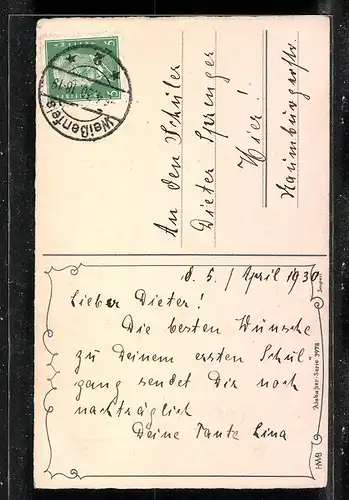 An den Schüler
Dieter Sprenger
Hier!
Naumburgerstr.
Weißenfels
d. 5. / April 1930
Lieber Dieter!
Die besten Wünsche
zu Deinem ersten Schul
gang sendet Dir noch
nachträglich
Deine Tante Lina
"Alabaster-Serie 3978
HWB